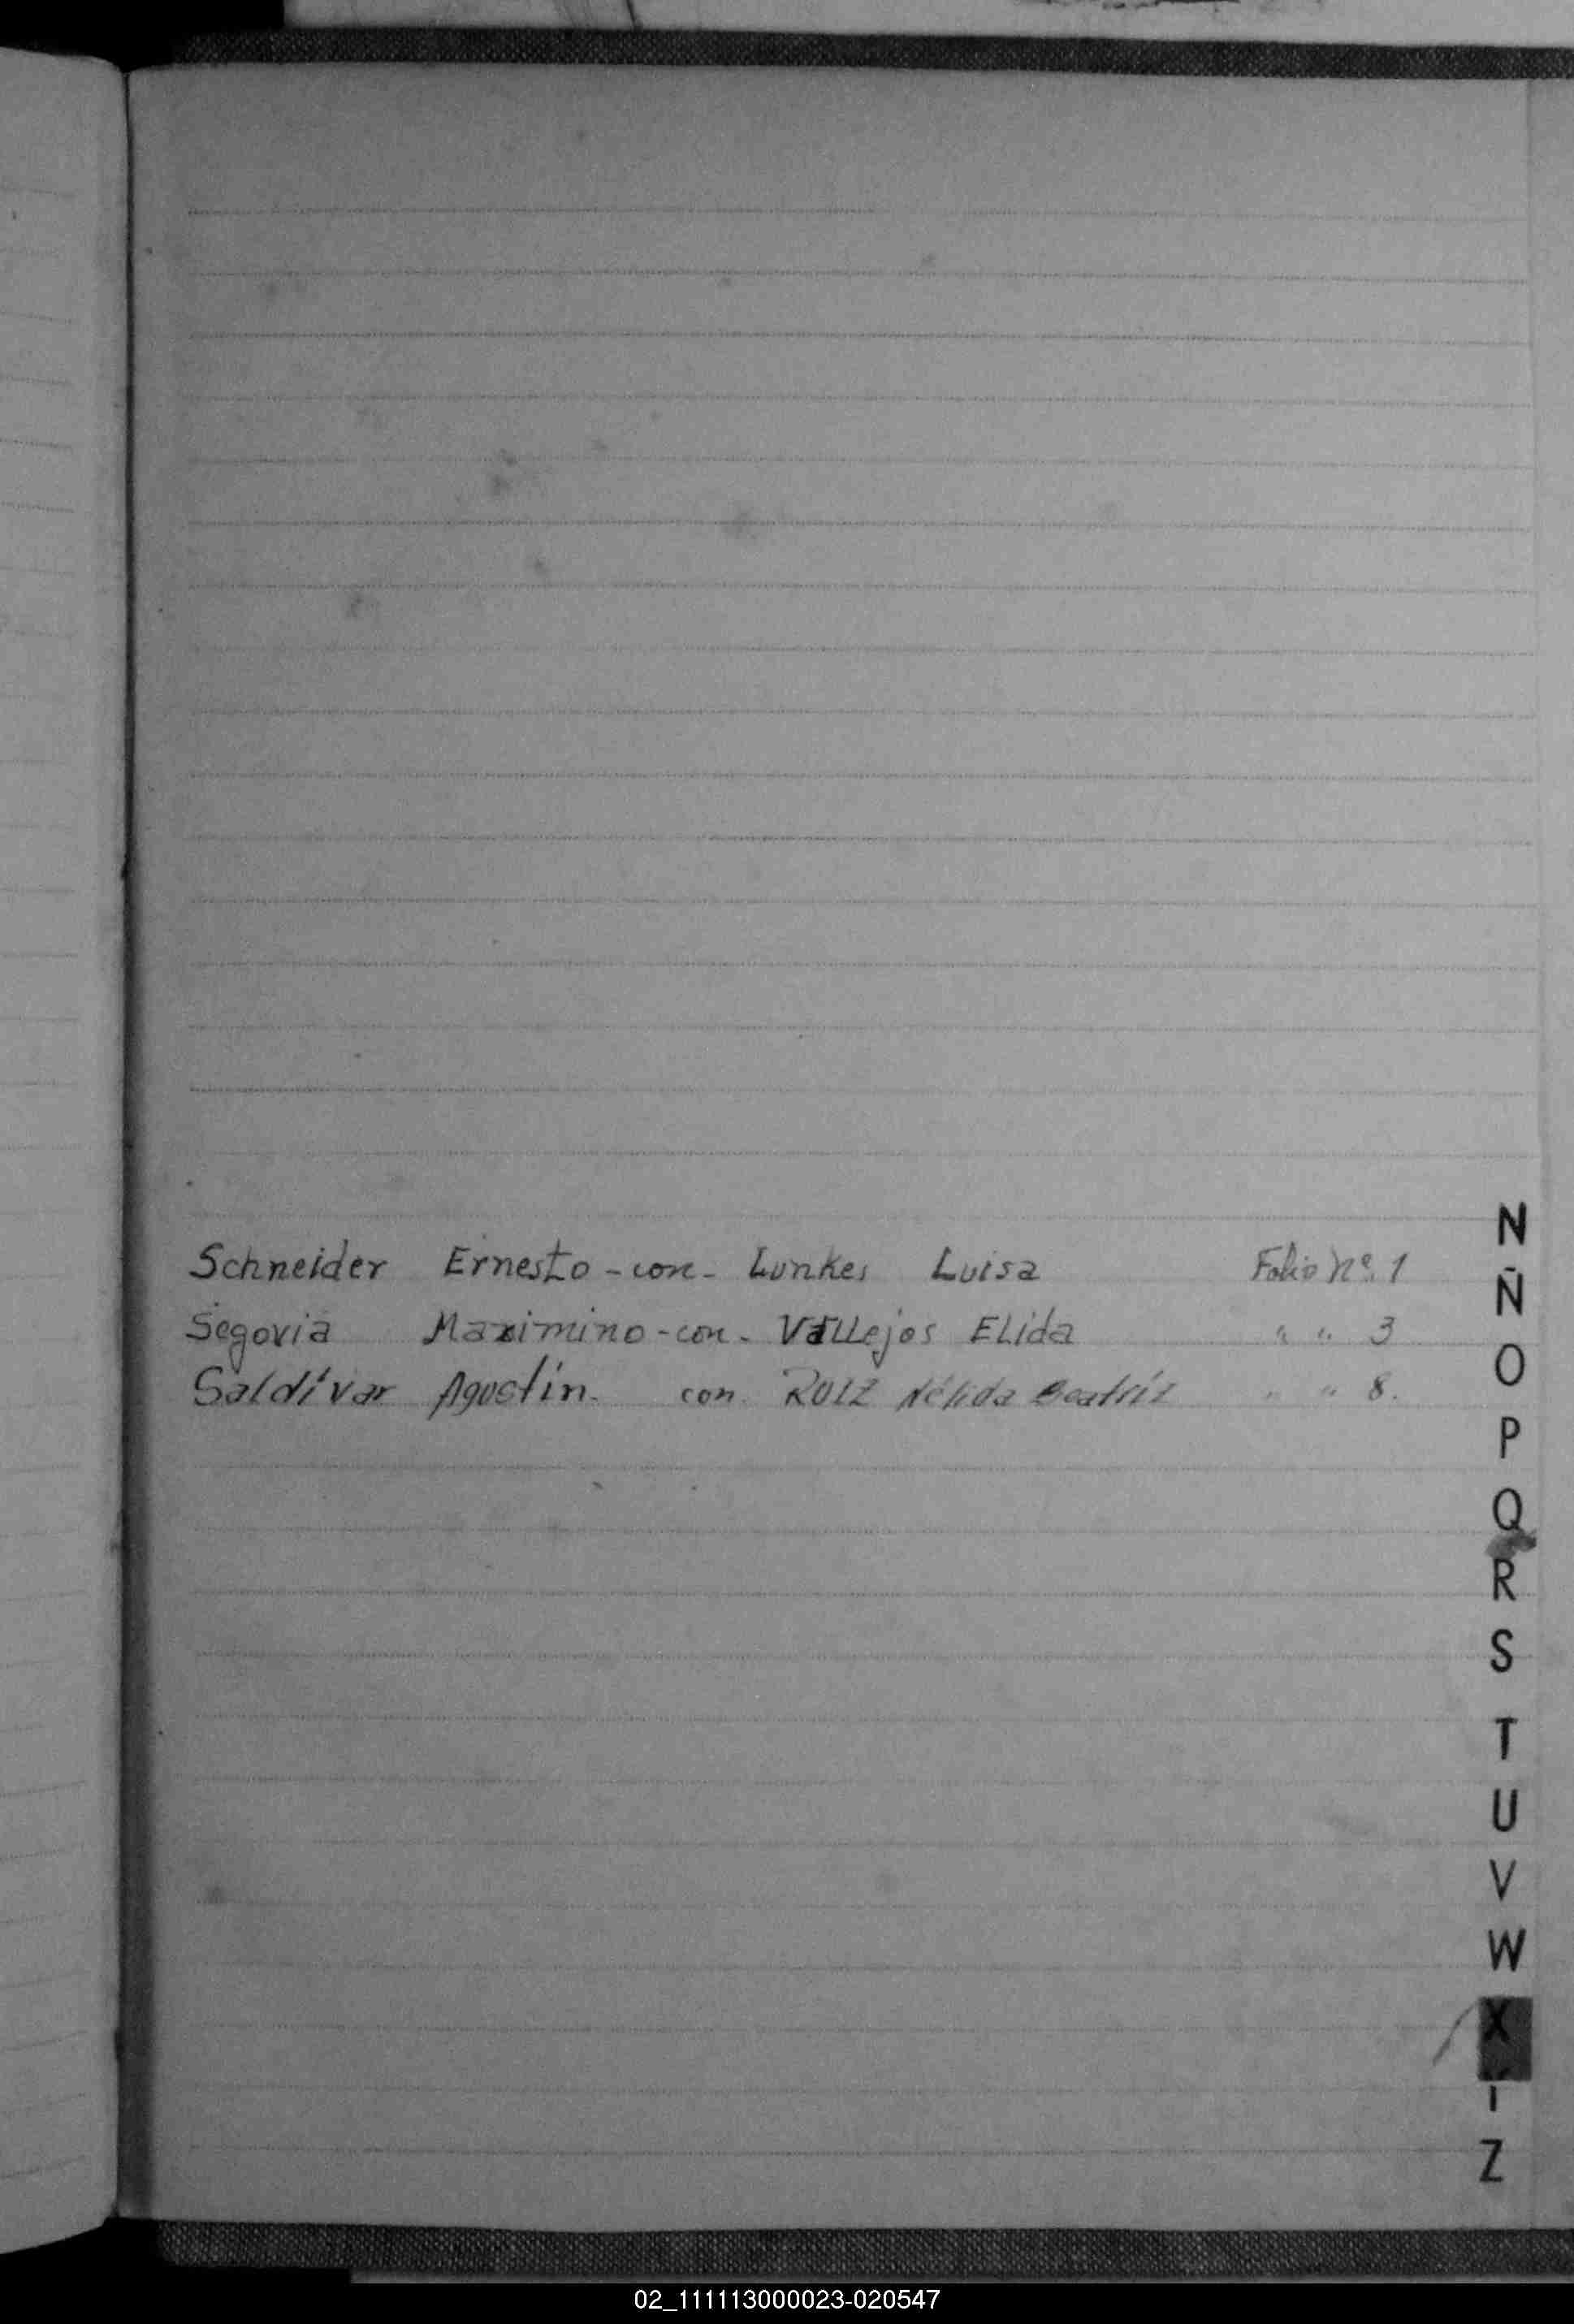 Schneider Ernesto - con - Lunkes Luisa Folio Nº. 1
Segovia Maximino - con - Vallejos Elida " " 3
Saldívar Agustín. con. Ruiz Nélida Beatríz " " 8.
N
Ñ
O
P
Q
R
S
T
U
V
W
X
Z
02_111113000023-020547